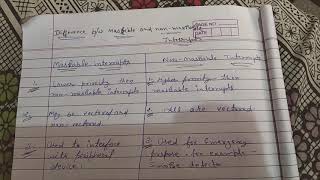 Difference b/w Maskable and non-maskable
Interrupts
PAGE NO
DATE
Maskable interrupts
Non-maskable Interrupts
1. Lower priority then
non-maskable interrupts
1. Higher priority then
maskable interrupts
2. May be vectored or
non-vectored.
2. All are vectored.
3. Used to interface
with peripheral
device.
3. Used for emergency
purpose for example -
smoke detector